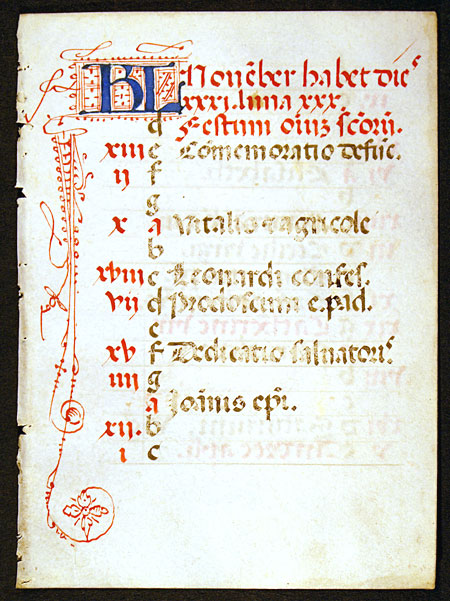 KL Nouēber habet dies
xxxi. luna xxx.
d Festum oīuz scōrū.
xiii e Cōmemoratio defūc.
ii f
g
x a Vitalis ⁊ agricole
b
xviii c Leonardi confes.
vii d Prodoscimi e. pad.
e
xv f Dedicatio saluatoris
iiii g
a Joānis epī.
xii. b
i c